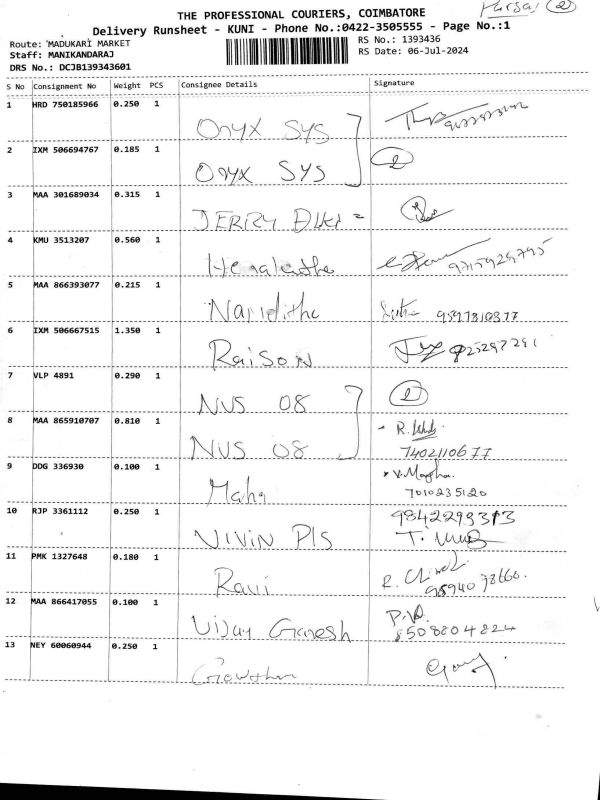 Mursal (2)
THE PROFESSIONAL COURIERS, COIMBATORE
Delivery Runsheet - KUNI - Phone No.:0422-3505555 - Page No.:1
Route: MADUKARI MARKET
Staff: MANIKANDARAJ
DRS No.: DCJB139343601
RS No.: 1393436
RS Date: 06-Jul-2024
S No Consignment No Weight PCS Consignee Details Signature
1 HRD 750185966 0.250 1
Onyx SYS
2 IXM 506694767 0.185 1
Onyx SYS (2)
3 MAA 301689034 0.315 1
JERRY
4 KMU 3513207 0.560 1
Hemalatha 9715929795
5 MAA 866393077 0.215 1
Nanditha 9597810877
6 IXM 506667515 1.350 1
Raison
7 VLP 4891 0.290 1
NVS 08 (2)
8 MAA 865910707 0.810 1
NVS 08 R.
7402110677
9 DDG 336930 0.100 1
Maha V.Megha.
7010235120
10 RJP 3361112 0.250 1
9842293313
NIVIN PIS
11 PMK 1327648 0.180 1
Ravi R.
12 MAA 866417055 0.100 1
Vijay Ganesh 8508804824
13 NEY 60060944 0.250 1
Gowtham